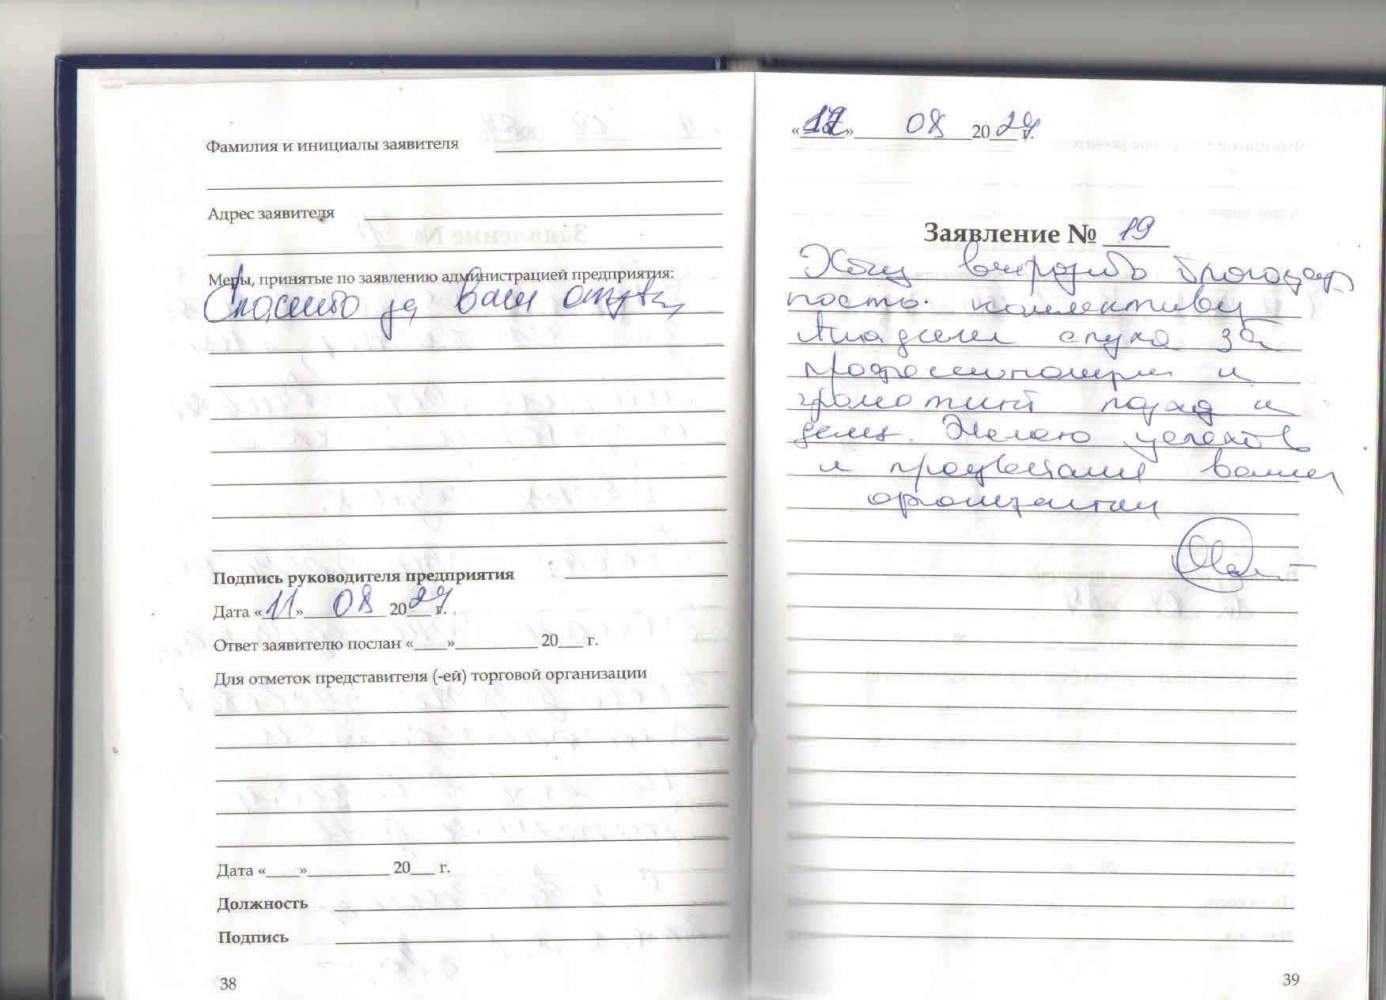 Фамилия и инициалы заявителя
Адрес заявителя
Меры, принятые по заявлению администрацией предприятия:
Спасибо за Ваш отзыв
Подпись руководителя предприятия
Дата «11» 08 2024 г.
Ответ заявителю послан «___»__________ 20___ г.
Для отметок представителя (-ей) торговой организации
Дата «____»__________ 20___ г.
Должность
Подпись
38
«12» 08 2024 г.
Заявление № 19
Хочу выразить благодар
ность коллективу
Академии слуха за
профессионализм и
грамотный подход к
делу. Желаю успехов
и процветания вашей
организации
39